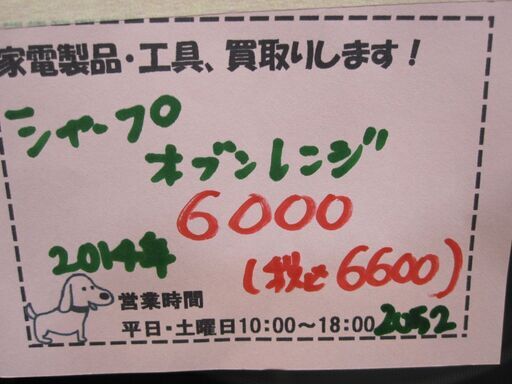 家電製品・工具、買取りします！
シャープ
オーブンレンジ
6000
2014年
(税込6600)
営業時間
平日・土曜日10:00～18:00
2052